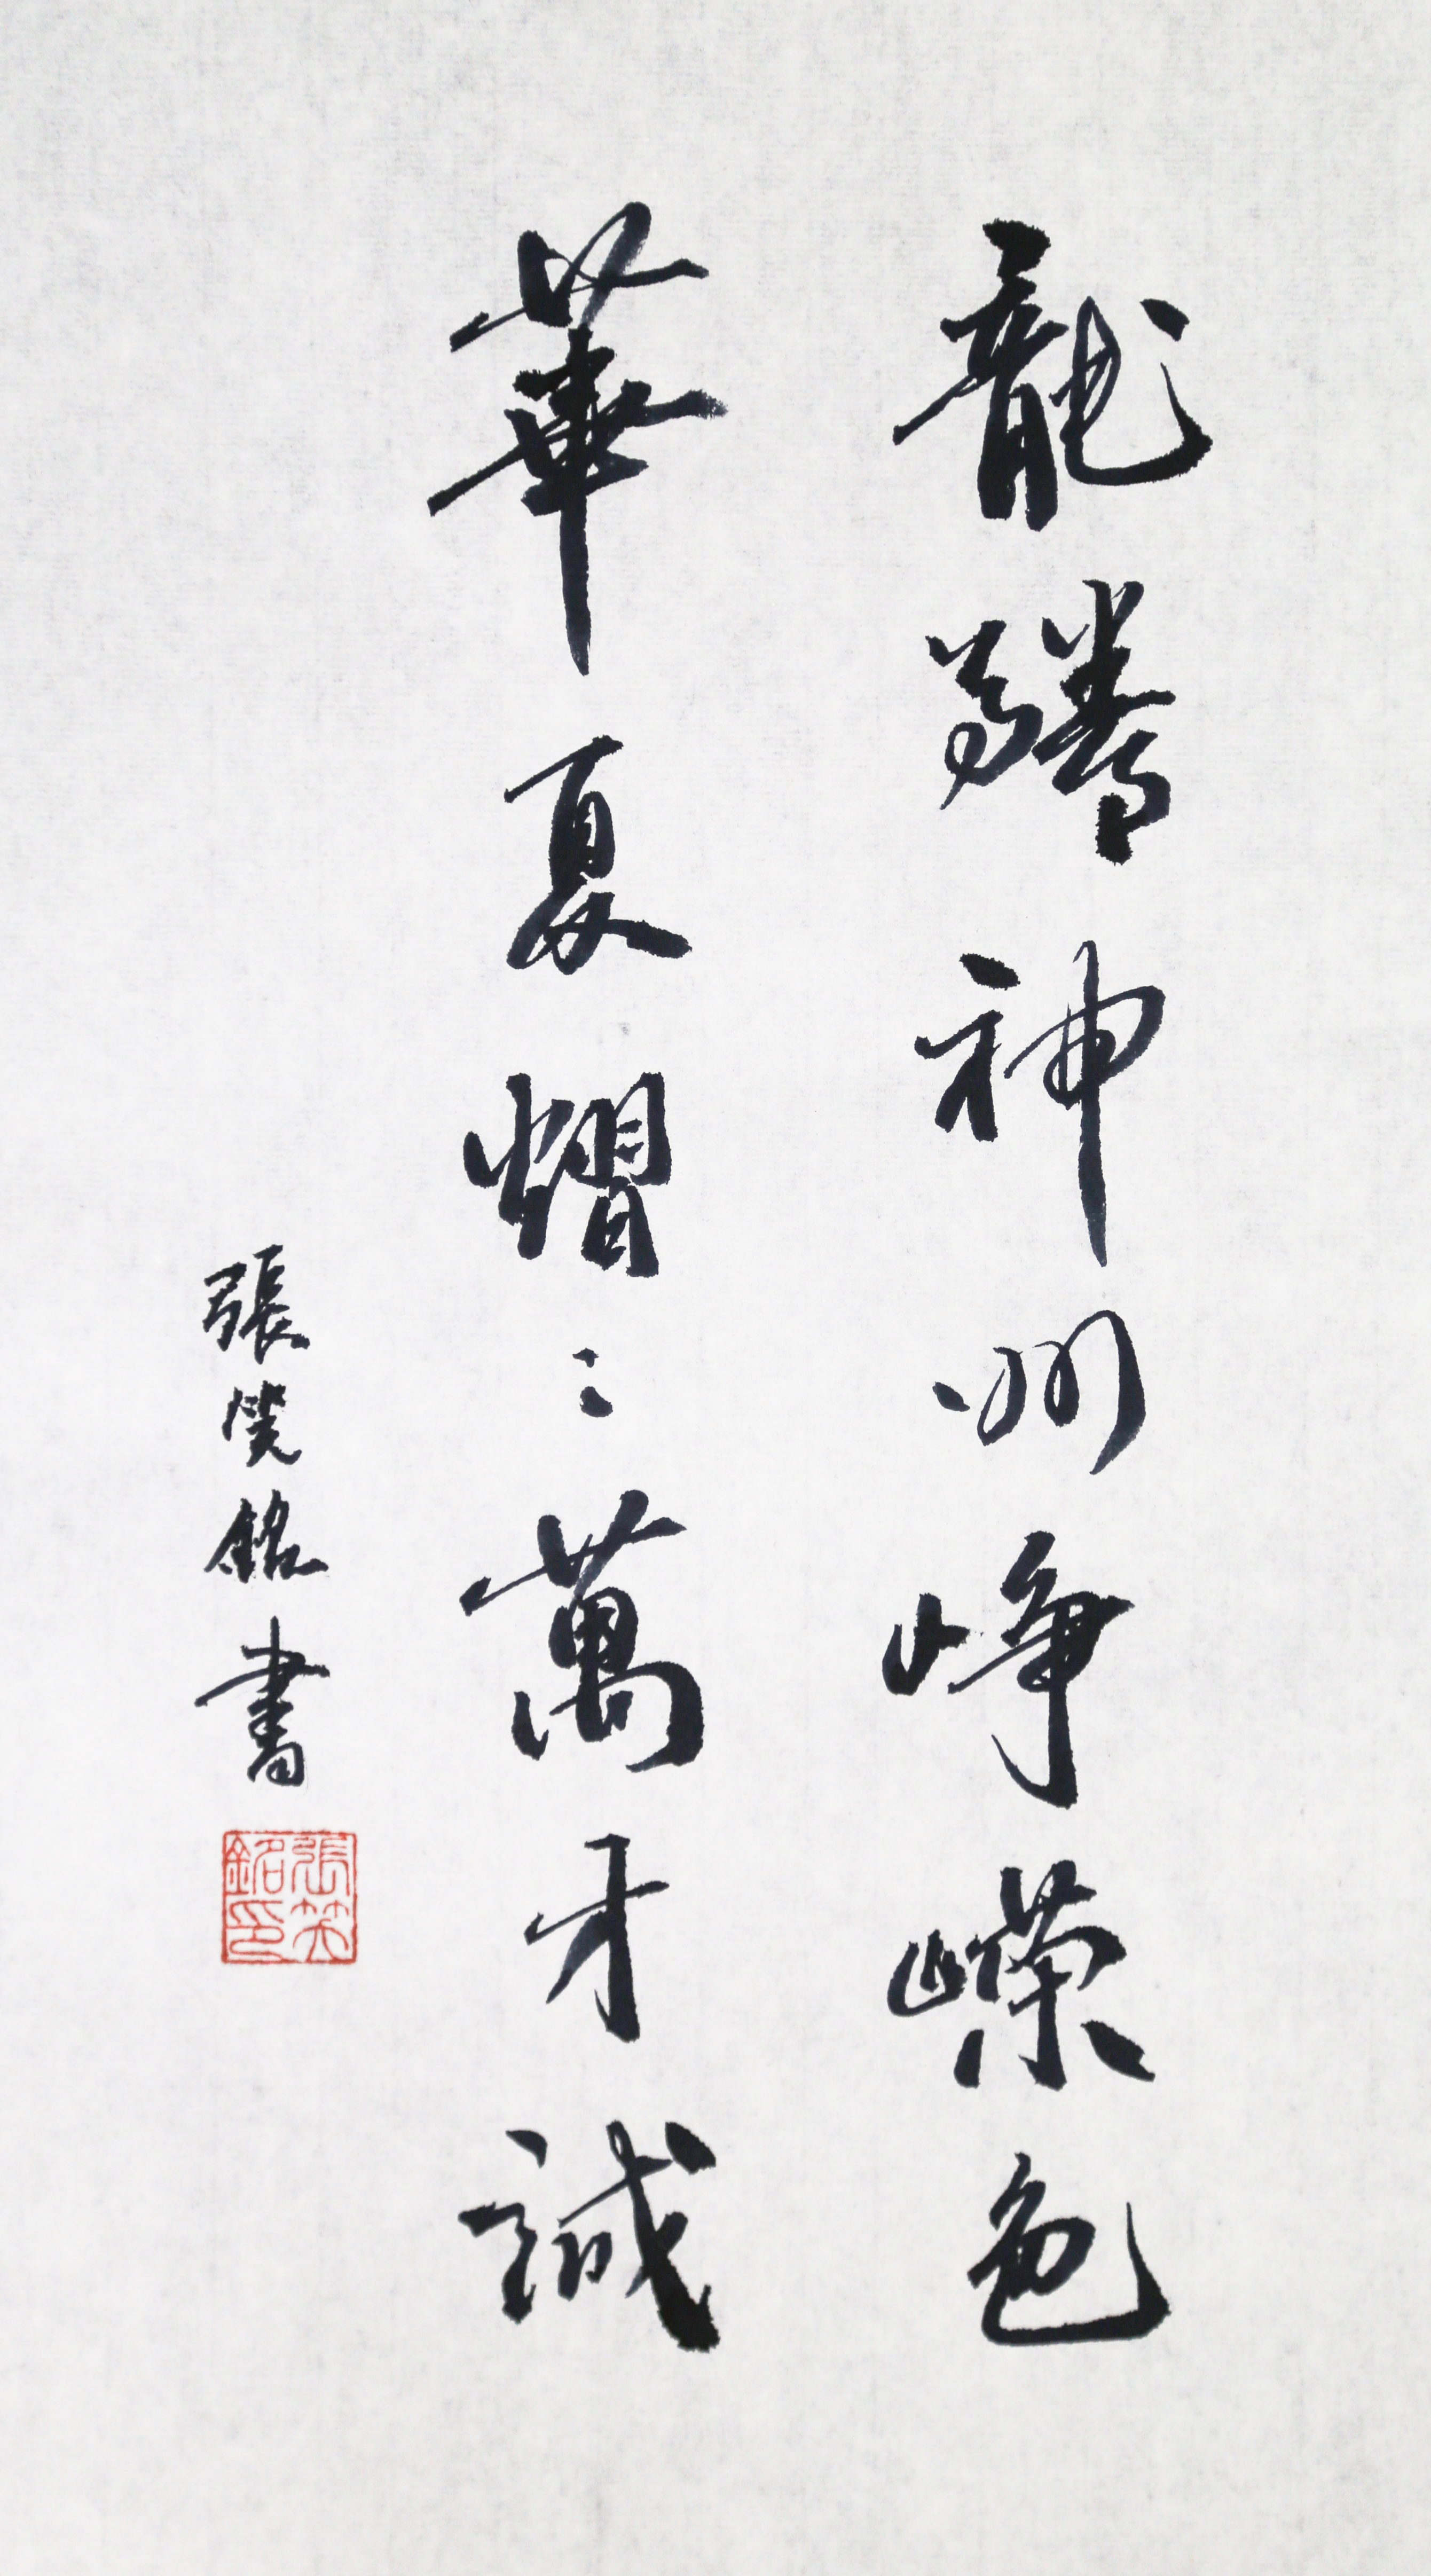 龍騰神州崢嶸色
華夏熠々萬才誠
張銘書
張銘印